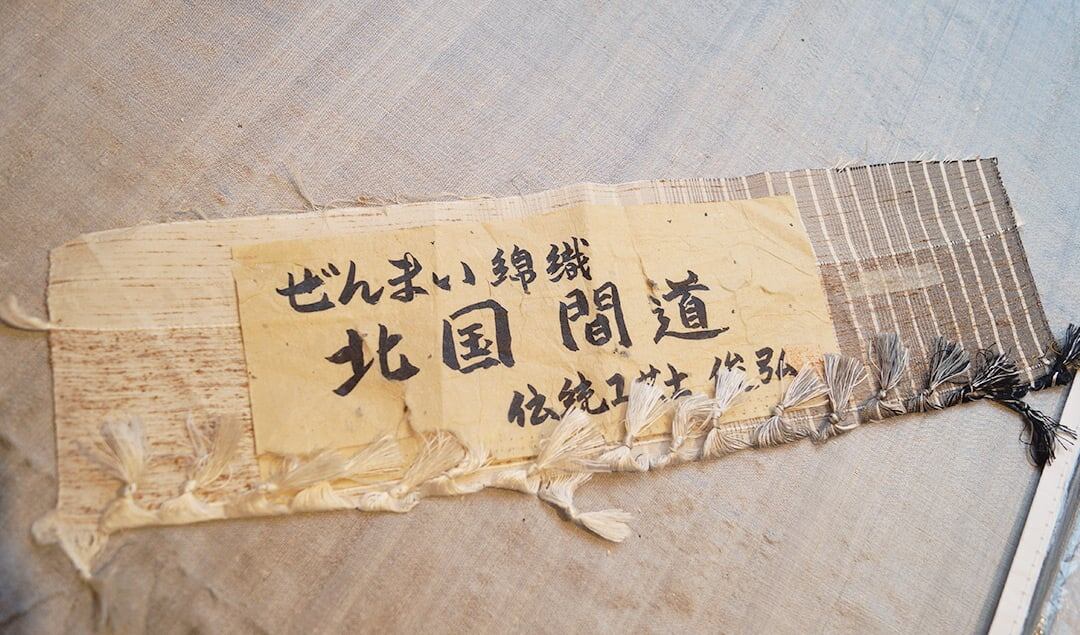 ぜんまい綿織
北国間道
伝統工芸士 俊弘